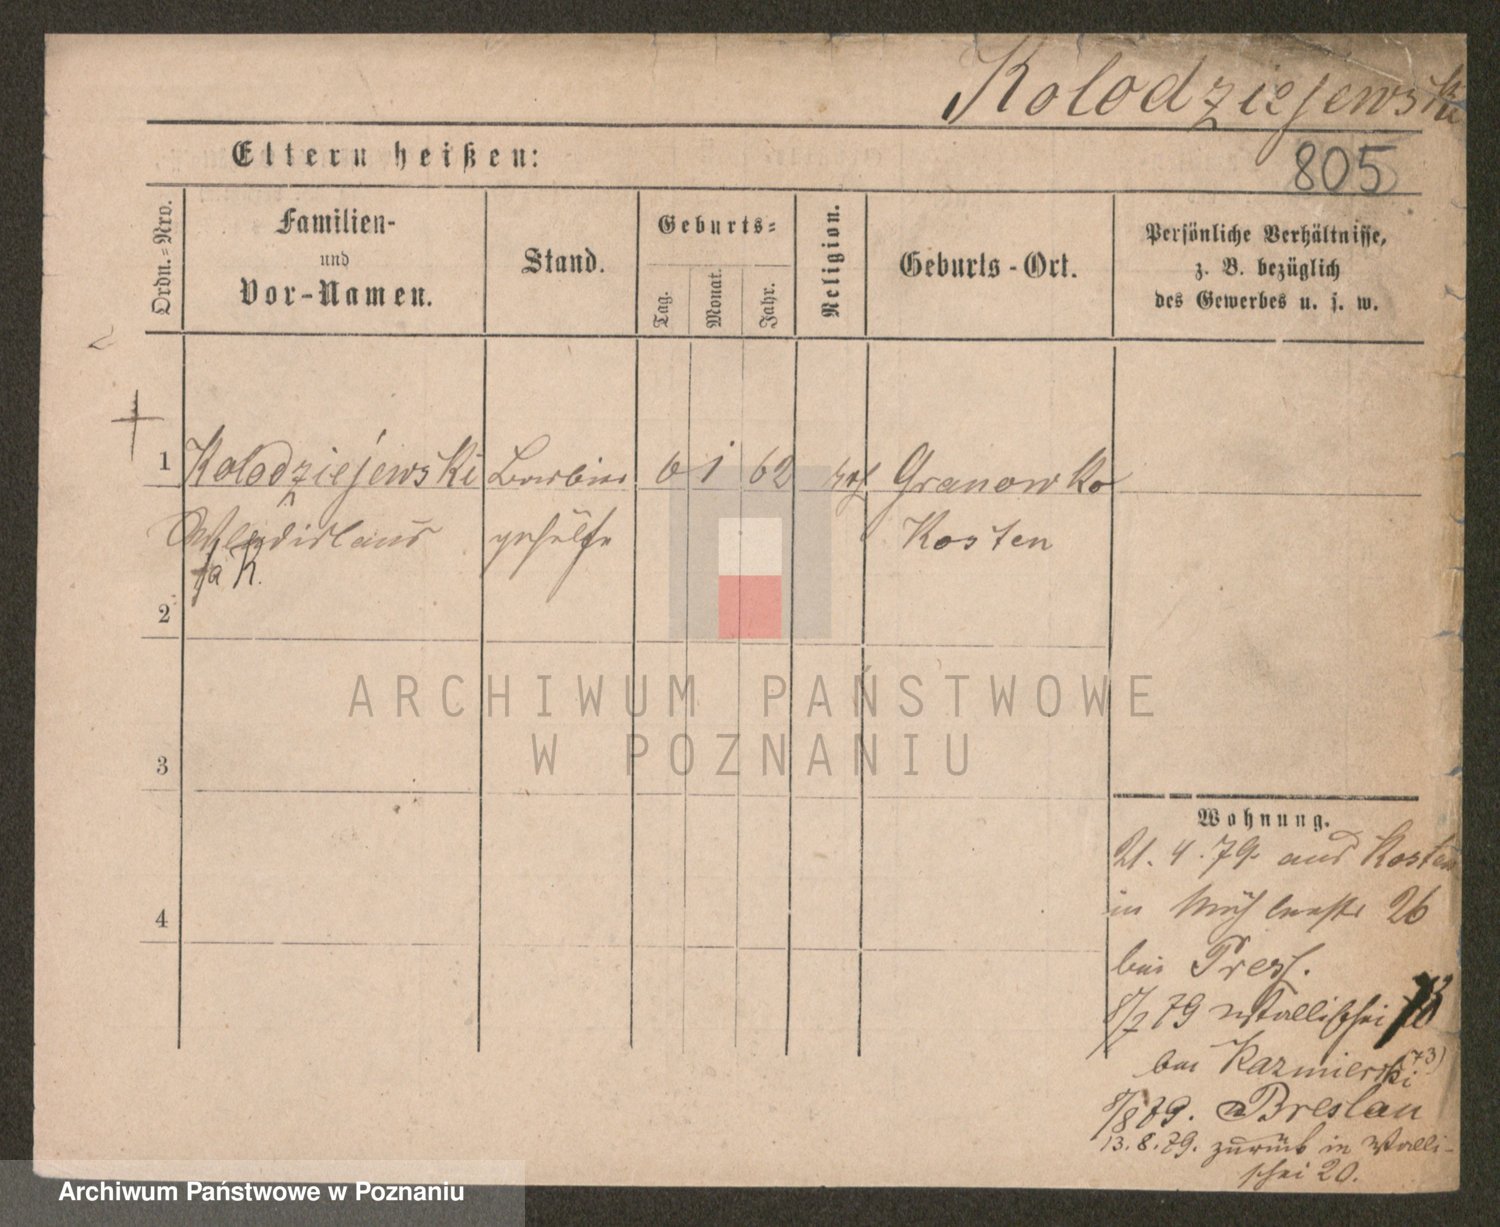 Kolodziejewski
Eltern heißen:
805
Ordn.=Nro.
Familien-
und
Vor-Namen.
Stand.
Geburts=
Tag.
Monat.
Jahr.
Religion.
Geburts-Ort.
Persönliche Verhältnisse,
z. B. bezüglich
des Gewerbes u. s. w.
1 Kolodziejewski Barbier 6 1 62 kath Granowko
Wladislaus gehülfe Kosten
2
3
4
ARCHIWUM PAŃSTWOWE
W POZNANIU
Wohnung.
21. 4. 79. aus Kosten
in Mühlenstr 26
bei
8/7 79 Wallischei
bei Kazmierski
(73)
8/8 79. Breslau
13. 8. 79. zurück in Walli-
schei 20.
Archiwum Państwowe w Poznaniu